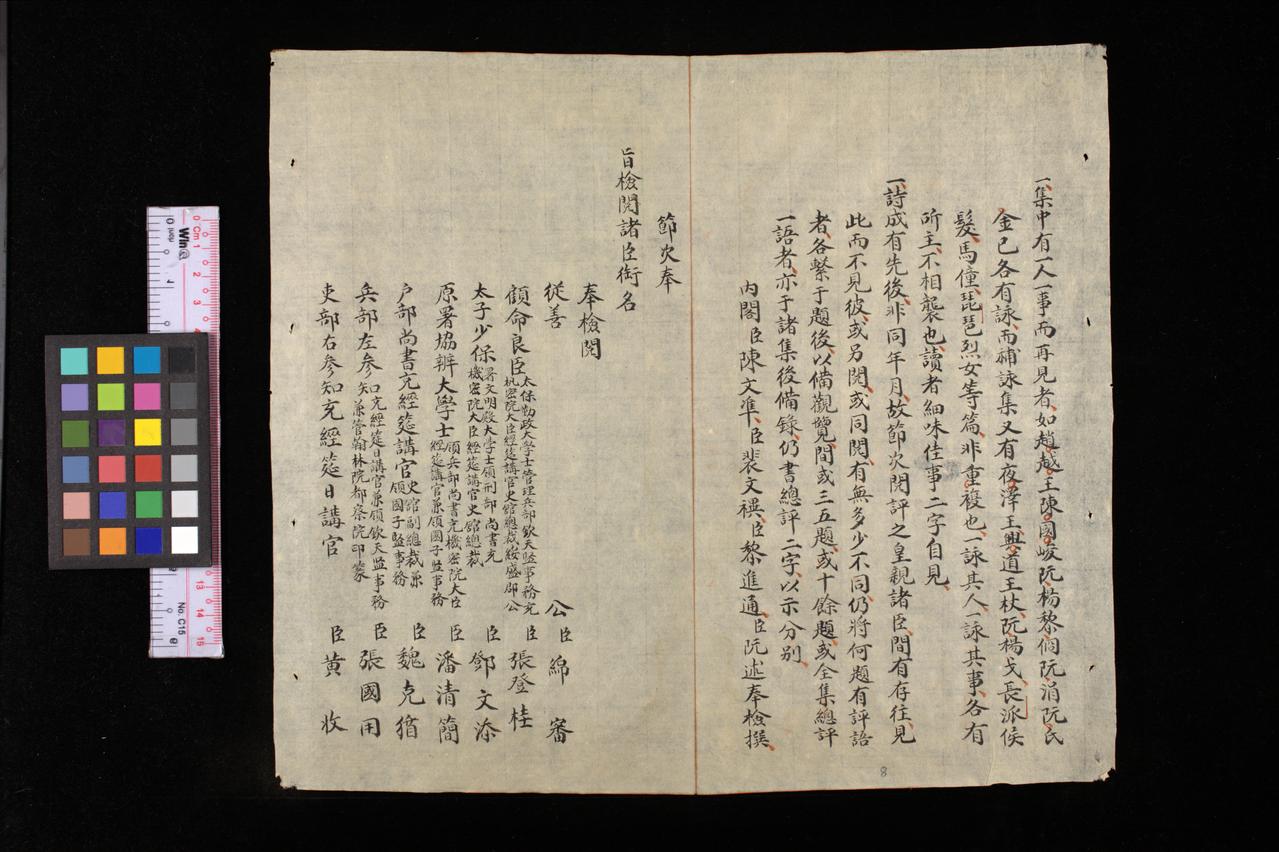 一集中有一人一事而再見者如趙越王陳國峻阮楊黎伺阮涓阮氏
金已各有詠而補詠集又有夜澤王興道王杖阮楊戈長派侯
髮馬僮琵琶烈女等篇非重複也一詠其人一詠其事各有
所主不相襲也讀者細味佳事二字自見
一詩成有先後非同年月故節次閱評之皇親諸臣間有存往見
此而不見彼或另閱或同閱有無多少不同仍將何題有評語
者各繫于題後以備觀覽間或三五題或十餘題或全集總評
一語者亦于諸集後備錄仍書總評二字以示分別
內閣臣陳文準臣裴文禩臣黎進通臣阮述奉檢撰
8
節次奉
旨檢閱諸臣銜名
奉檢閱
從善公臣綿審
顧命良臣太保勤政大學士管理兵部欽天監事務充
機密院大臣經筵講官史館總裁綏盛郡公臣張登桂
太子少保署文明殿大學士領刑部尚書充
機密院大臣經筵講官史館總裁臣鄧文添
原署協辦大學士領兵部尚書充機密院大臣
經筵講官兼領國子監事務臣潘清簡
户部尚書充經筵講官史館副總裁兼
領國子監事務臣魏克循
兵部左參知充經筵日講官兼領欽天監事務
兼管翰林院都察院印篆臣張國用
吏部右參知充經筵日講官臣黄收
0 Cm 1 2 3 4 13 14 15
Win@
No. C15